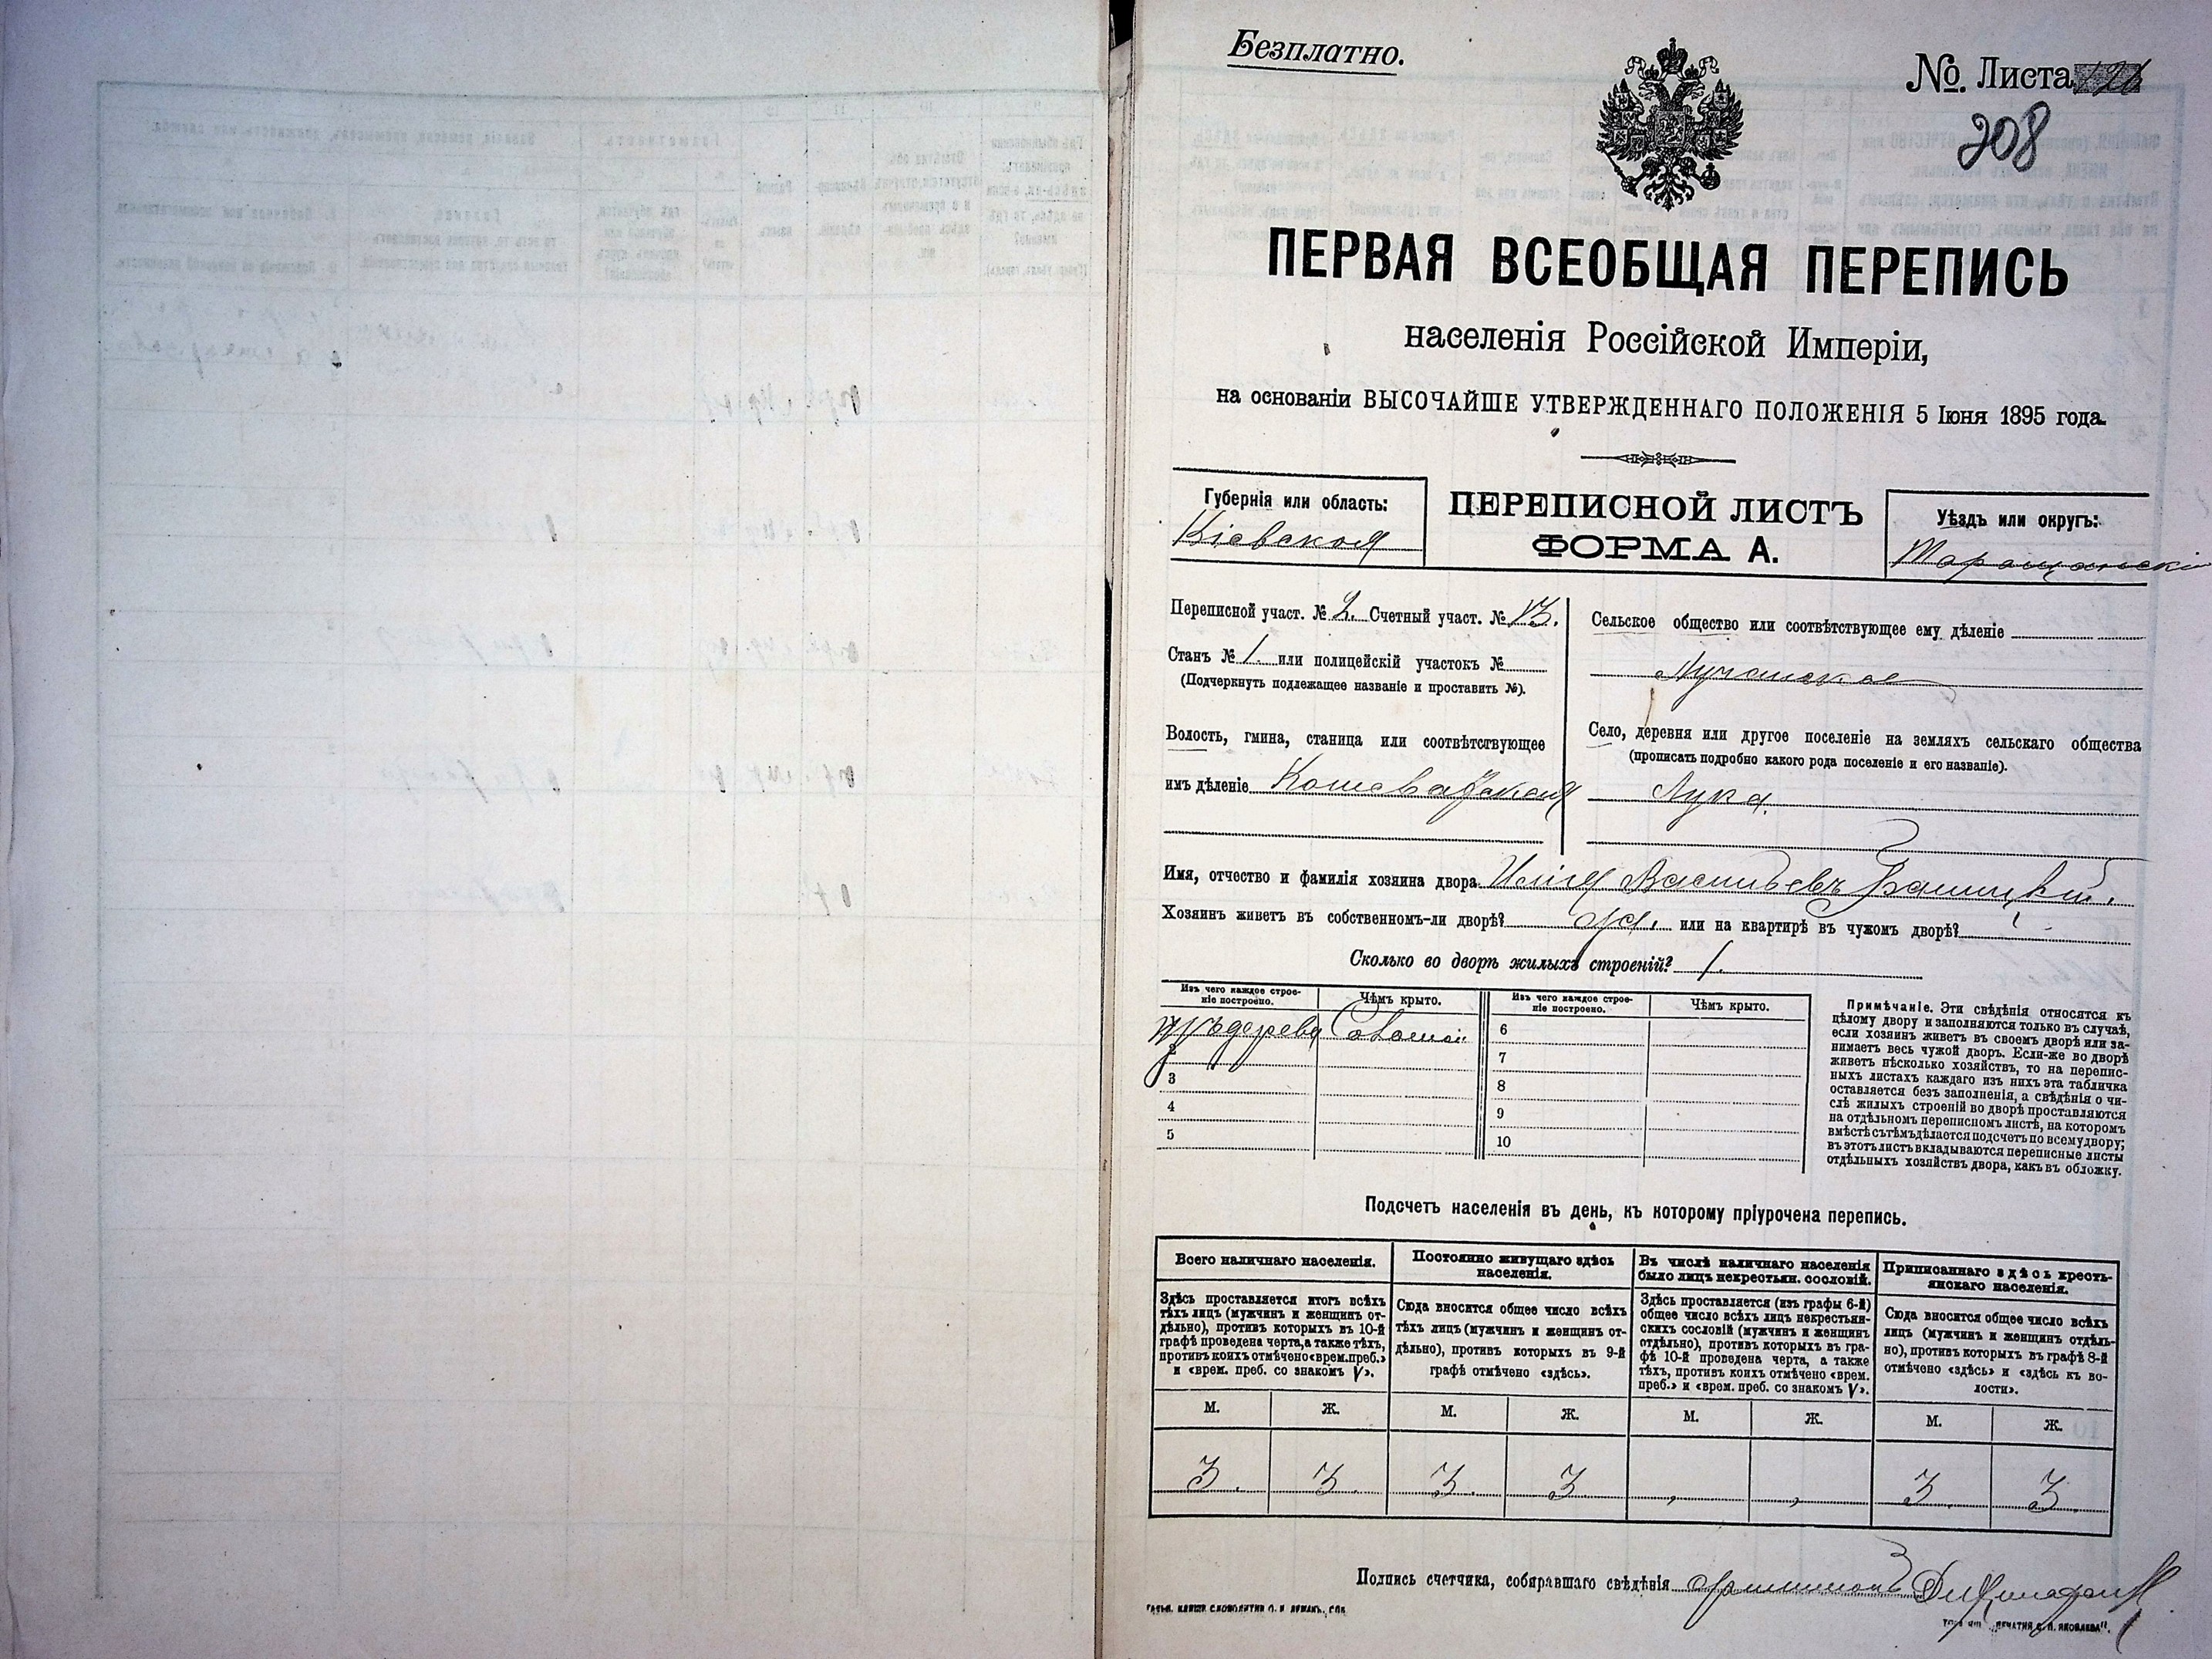 Безплатно.
№. Листа
208
ПЕРВАЯ ВСЕОБЩАЯ ПЕРЕПИСЬ
населенія Россійской Имперіи,
на основаніи ВЫСОЧАЙШЕ УТВЕРЖДЕННАГО ПОЛОЖЕНІЯ 5 Іюня 1895 года.
Губернія или область:
Кіевская
ПЕРЕПИСНОЙ ЛИСТЪ
ФОРМА А.
Уѣздъ или округъ:
Таращанскій
Переписной участ. № 2. Счетный участ. № 13.
Станъ № 1. или полицейскій участокъ №
(Подчеркнуть подлежащее названіе и проставить №).
Волость, гмина, станица или соотвѣтствующее
имъ дѣленіе Кошеватская
Сельское общество или соотвѣтствующее ему дѣленіе
Лучанское
Село, деревня или другое поселеніе на земляхъ сельскаго общества
(прописать подробно какого рода поселеніе и его названіе).
Лука.
Имя, отчество и фамилія хозяина двора Илія Васильевъ
Хозяинъ живетъ въ собственномъ-ли дворѣ? да. или на квартирѣ въ чужомъ дворѣ?
Сколько во дворѣ жилыхъ строеній? 1.
Изъ чего каждое строе-
ніе построено.
Чѣмъ крыто.
Изъ чего каждое строе-
ніе построено.
Чѣмъ крыто.
изъ дерева Соломой
2
3
4
5
6
7
8
9
10
Примѣчаніе. Эти свѣдѣнія относятся къ
цѣлому двору и заполняются только въ случаѣ,
если хозяинъ живетъ въ своемъ дворѣ или за-
нимаетъ весь чужой дворъ. Если-же во дворѣ
живетъ нѣсколько хозяйствъ, то на перепис-
ныхъ листахъ каждаго изъ нихъ эта табличка
оставляется безъ заполненія, а свѣдѣнія о чи-
слѣ жилыхъ строеній во дворѣ проставляются
на отдѣльномъ переписномъ листѣ, на которомъ
вмѣстѣ съ тѣмъ дѣлается подсчетъ по всему двору;
въ этотъ листъ вкладываются переписные листы
отдѣльныхъ хозяйствъ двора, какъ въ обложку.
Подсчетъ населенія въ день, къ которому пріурочена перепись.
Всего наличнаго населенія.
Здѣсь проставляется итогъ всѣхъ
тѣхъ лицъ (мужчинъ и женщинъ от-
дѣльно), противъ которыхъ въ 10-й
графѣ проведена черта, а также тѣхъ,
противъ коихъ отмѣчено «врем. преб.»
и «врем. преб. со знакомъ V».
Постоянно живущаго здѣсь
населенія.
Сюда вносится общее число всѣхъ
тѣхъ лицъ (мужчинъ и женщинъ от-
дѣльно), противъ которыхъ въ 9-й
графѣ отмѣчено «здѣсь».
Въ числѣ наличнаго населенія
было лицъ некрестьян. сословій.
Здѣсь проставляется (изъ графы 6-й)
общее число всѣхъ лицъ некрестьян-
скихъ сословій (мужчинъ и женщинъ
отдѣльно), противъ которыхъ въ гра-
фѣ 10-й проведена черта, а также
тѣхъ, противъ коихъ отмѣчено «врем.
преб.» и «врем. преб. со знакомъ V».
Приписаннаго здѣсь кресть-
янскаго населенія.
Сюда вносится общее число всѣхъ
лицъ (мужчинъ и женщинъ отдѣль-
но), противъ которыхъ въ графѣ 8-й
отмѣчено «здѣсь» и «здѣсь къ во-
лости».
М. Ж. М. Ж. М. Ж. М. Ж.
3. 3. 3. 3 3. 3.
Подпись счетчика, собиравшаго свѣдѣнія